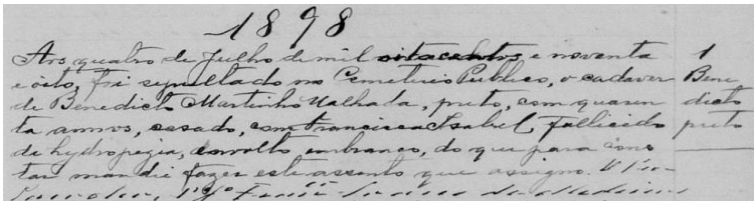 1898
Aos quatro de Julho de mil oitocentos e noventa
e oito, foi sepultado no Cemeterio Publico, o cadaver
de Benedicto Martinho Malhada, preto, com quaren
ta annos, casado, com Francisca Isabel, fallicido
de hydropezia, envolto em branco, do que para cons
tar mandei fazer este assento que assigno. O
1
Bene
dicto
preto